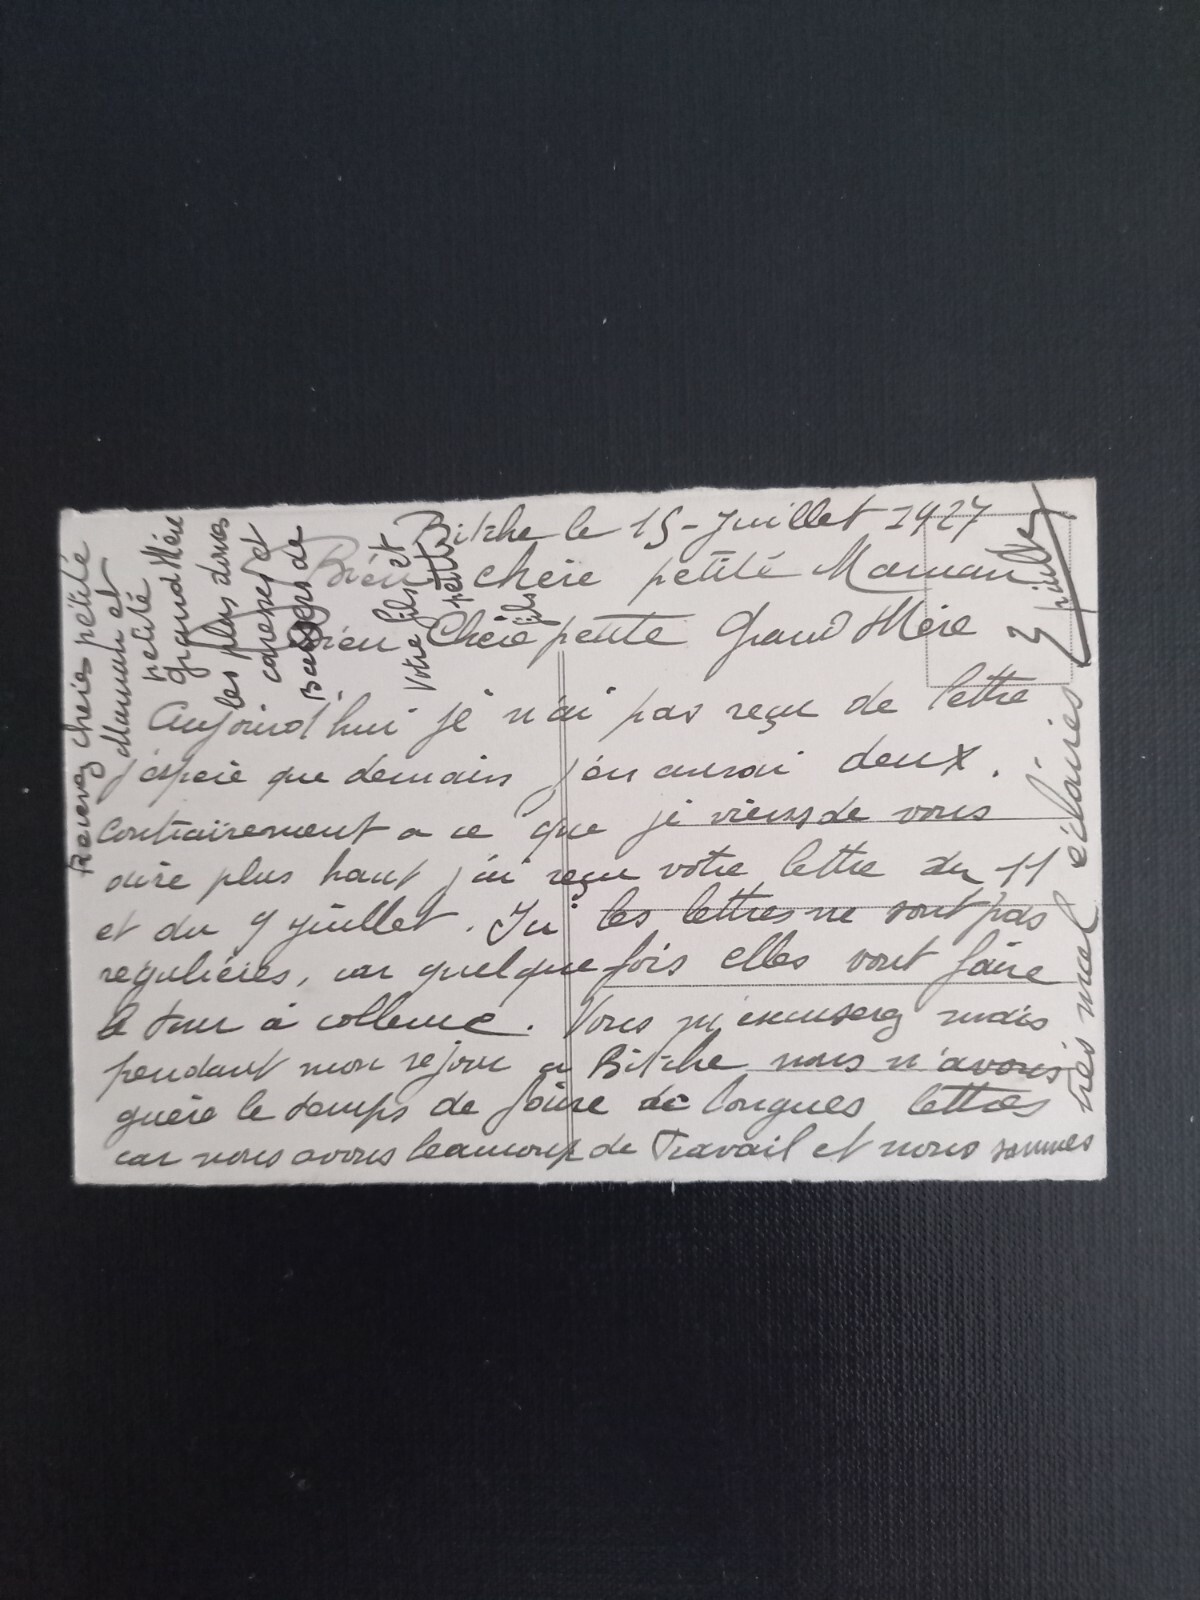 Bitche le 15 - Juillet 1927
Bien chère petite Maman
Bien Chère petite Grand Mère
Aujourd'hui je n'ai pas reçu de lettre
j'espère que demain j'en aurai deux.
Contrairement a ce que je viens de vous
dire plus haut j'ai reçu votre lettre du 11
et du 9 juillet. Ici les lettres ne sont pas
regulières, car quelque fois elles vont faire
le tour à
Vous m'excuserez mais
pendant mon sejour a Bitche nous n'avons
guère le temps de faire de longues lettres
car nous avons beaucoup de Travail et nous sommes
très mal éclairés
Recevez chères petite
Maman et
petite
Grand Mère
les plus douces
caresses et
Baisers de
Votre fils et
petit
fils